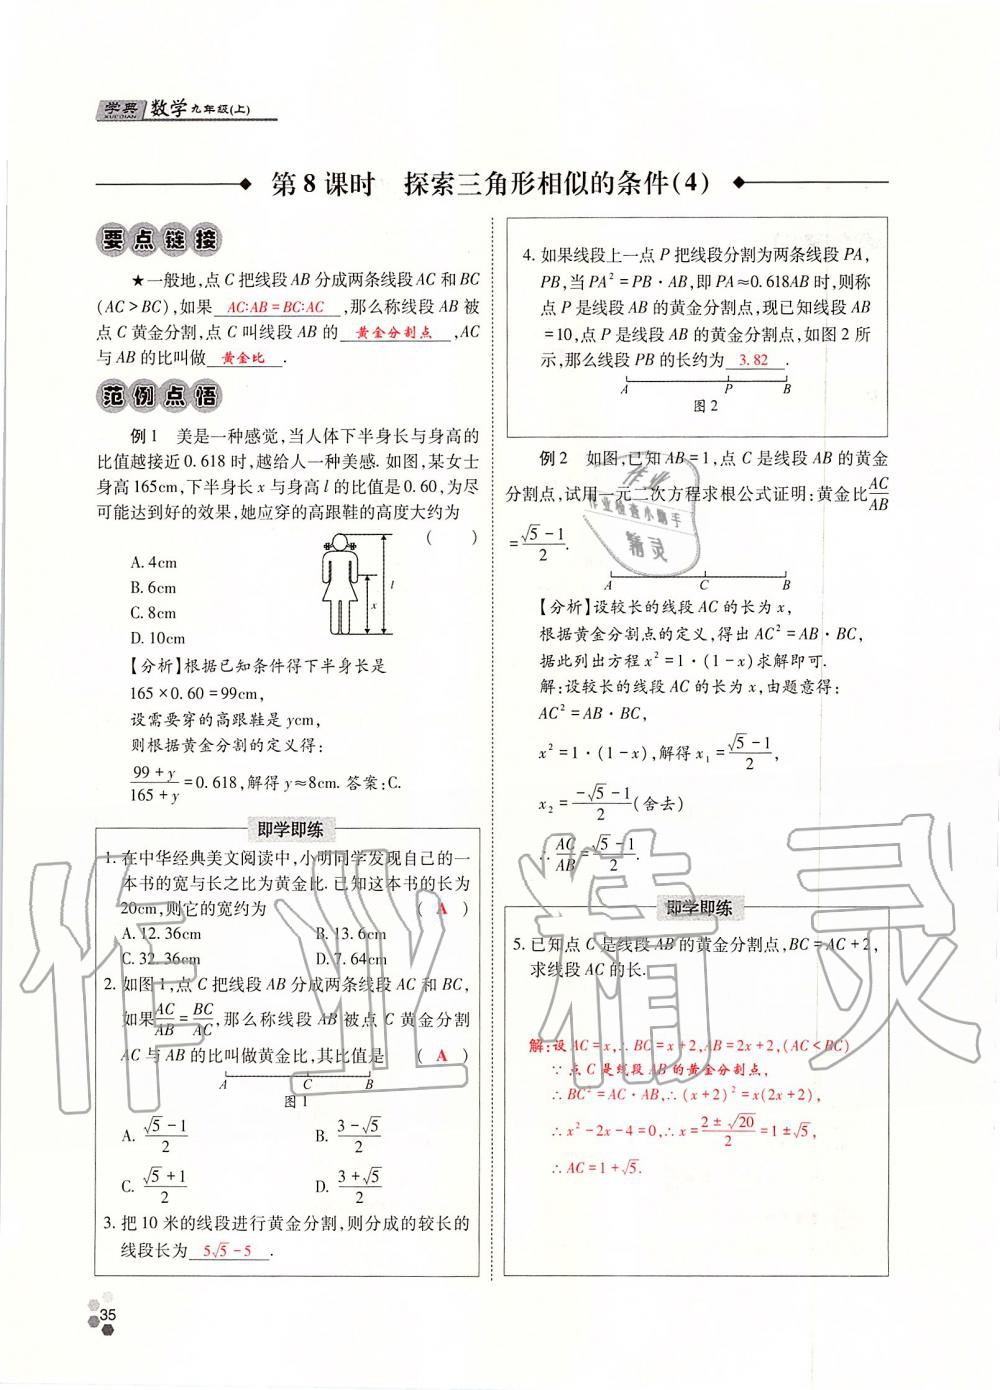 学典 数学 九年级(上)
XUEDIAN
第8课时 探索三角形相似的条件(4)
要点链接
★一般地,点C把线段AB分成两条线段AC和BC
(AC>BC),如果 AC:AB=BC:AC ,那么称线段AB被
点C黄金分割,点C叫线段AB的 黄金分割点 ,AC
与AB的比叫做 黄金比 .
范例点悟
例1 美是一种感觉,当人体下半身长与身高的
比值越接近0.618时,越给人一种美感.如图,某女士
身高165cm,下半身长x与身高l的比值是0.60,为尽
可能达到好的效果,她应穿的高跟鞋的高度大约为
( )
A.4cm
B.6cm
C.8cm
D.10cm
l
x
【分析】根据已知条件得下半身长是
165×0.60=99cm,
设需要穿的高跟鞋是ycm,
则根据黄金分割的定义得:
(99+y)/(165+y)=0.618,解得y≈8cm.答案:C.
即学即练
1.在中华经典美文阅读中,小明同学发现自己的一
本书的宽与长之比为黄金比.已知这本书的长为
20cm,则它的宽约为 ( A )
A.12.36cm B.13.6cm
C.32.36cm D.7.64cm
2.如图1,点C把线段AB分成两条线段AC和BC,
如果AC/AB=BC/AC,那么称线段AB被点C黄金分割
AC与AB的比叫做黄金比,其比值是 ( A )
A C B
图1
A. (√5-1)/2 B. (3-√5)/2
C. (√5+1)/2 D. (3+√5)/2
3.把10米的线段进行黄金分割,则分成的较长的
线段长为 5√5-5 .
35
4.如果线段上一点P把线段分割为两条线段PA,
PB,当PA²=PB·AB,即PA≈0.618AB时,则称
点P是线段AB的黄金分割点,现已知线段AB
=10,点P是线段AB的黄金分割点,如图2所
示,那么线段PB的长约为 3.82 .
A P B
图2
例2 如图,已知AB=1,点C是线段AB的黄金
分割点,试用一元二次方程求根公式证明:黄金比AC/AB
=(√5-1)/2.
A C B
【分析】设较长的线段AC的长为x,
根据黄金分割点的定义,得出AC²=AB·BC,
据此列出方程x²=1·(1-x)求解即可.
解:设较长的线段AC的长为x,由题意得:
AC²=AB·BC,
x²=1·(1-x),解得x₁=(√5-1)/2,
x₂=(-√5-1)/2(舍去)
∴AC/AB=(√5-1)/2.
即学即练
5.已知点C是线段AB的黄金分割点,BC=AC+2,
求线段AC的长.
解:设AC=x,∴BC=x+2,AB=2x+2,(AC<BC)
∵点C是线段AB的黄金分割点,
∴BC²=AC·AB,∴(x+2)²=x(2x+2),
∴x²-2x-4=0,∴x=(2±√20)/2=1±√5,
∴AC=1+√5.
作业
作业检查小助手
精灵
作业精灵